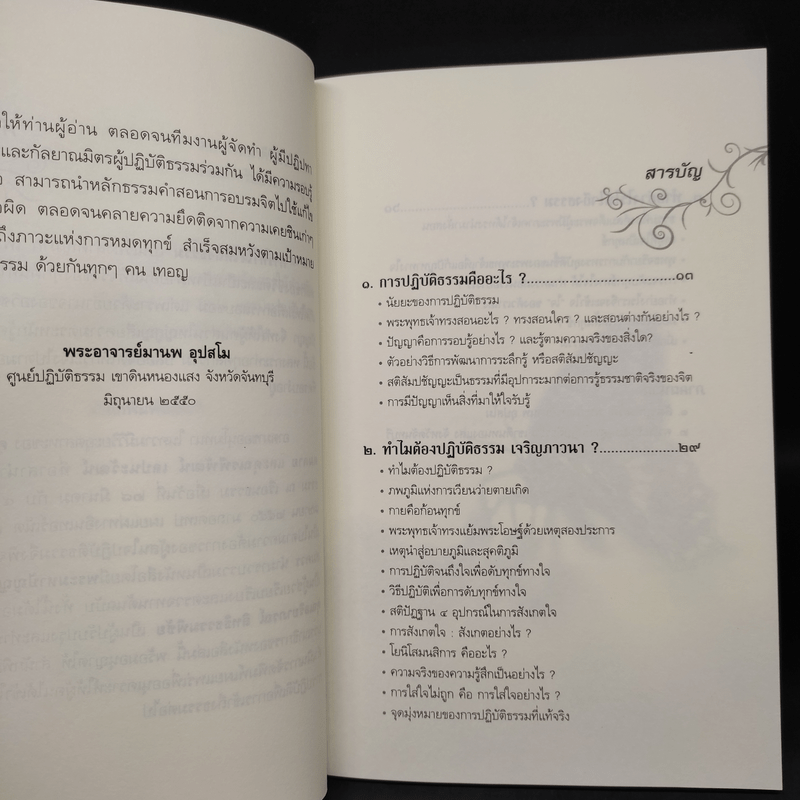 ให้ท่านผู้อ่าน ตลอดจนทีมงานผู้จัดทำ ผู้มีปฏิปทา
และกัลยาณมิตรผู้ปฏิบัติธรรมร่วมกัน ได้มีความรอบรู้
สามารถนำหลักธรรมคำสอนการอบรมจิตไปใช้แก้ไข
ผิด ตลอดจนคลายความยึดติดจากความเคยชินเก่าๆ
ถึงภาวะแห่งการหมดทุกข์ สำเร็จสมหวังตามเป้าหมาย
ธรรม ด้วยกันทุกๆ คน เทอญ
พระอาจารย์มานพ อุปสโม
ศูนย์ปฏิบัติธรรม เขาดินหนองแสง จังหวัดจันทบุรี
มิถุนายน ๒๕๕๐
สารบัญ
๑. การปฏิบัติธรรมคืออะไร ?..............................๑๓
• นัยยะของการปฏิบัติธรรม
• พระพุทธเจ้าทรงสอนอะไร ? ทรงสอนใคร ? และสอนต่างกันอย่างไร ?
• ปัญญาคือการรอบรู้อย่างไร ? และรู้ตามความจริงของสิ่งใด?
• ตัวอย่างวิธีการพัฒนาการระลึกรู้ หรือสติสัมปชัญญะ
• สติสัมปชัญญะเป็นธรรมที่มีอุปการะมากต่อการรู้ธรรมชาติจริงของจิต
• การมีปัญญาเห็นสิ่งที่มาให้ใจรับรู้
๒. ทำไมต้องปฏิบัติธรรม เจริญภาวนา ?....................๒๙
• ทำไมต้องปฏิบัติธรรม ?
• ภพภูมิแห่งการเวียนว่ายตายเกิด
• กายคือก้อนทุกข์
• พระพุทธเจ้าทรงแย้มพระโอษฐ์ด้วยเหตุสองประการ
• เหตุนำสู่อบายภูมิและสุคติภูมิ
• การปฏิบัติจนถึงใจเพื่อดับทุกข์ทางใจ
• วิธีปฏิบัติเพื่อการดับทุกข์ทางใจ
• สติปัฏฐาน ๔ อุปกรณ์ในการสังเกตใจ
• การสังเกตใจ : สังเกตอย่างไร ?
• โยนิโสมนสิการ คืออะไร ?
• ความจริงของความรู้สึกเป็นอย่างไร ?
• การใส่ใจไม่ถูก คือ การใส่ใจอย่างไร ?
• จุดมุ่งหมายของการปฏิบัติธรรมที่แท้จริง